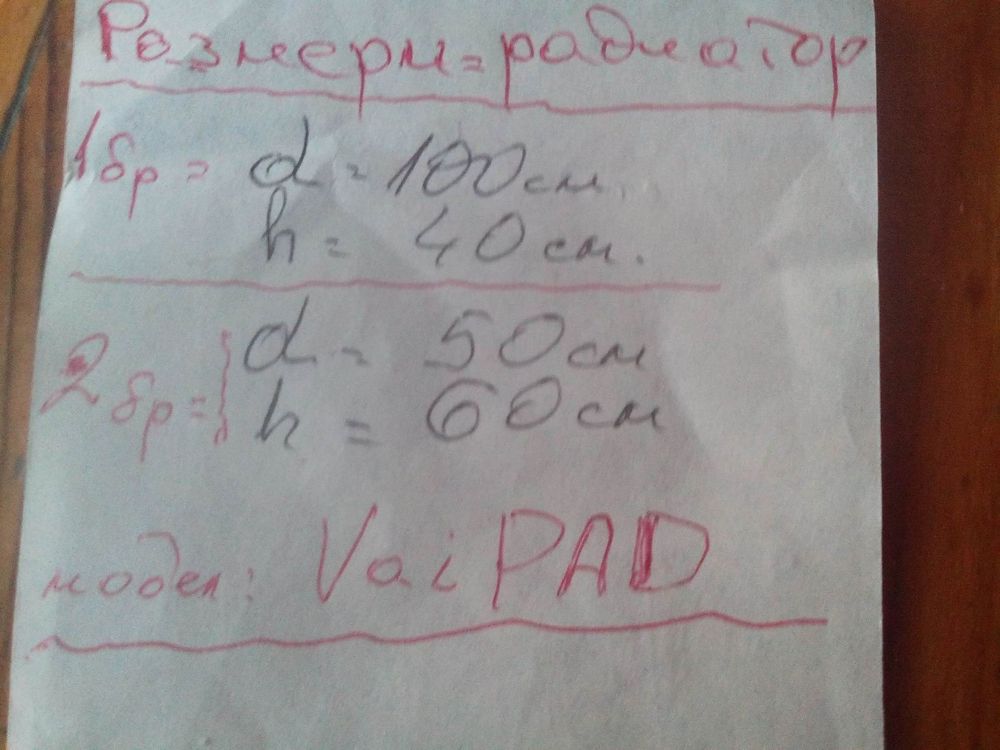 Размери=радиатор
1бр= d=100см.
h= 40см.
2бр={d= 50см
h = 60см
модел: VaiPAD